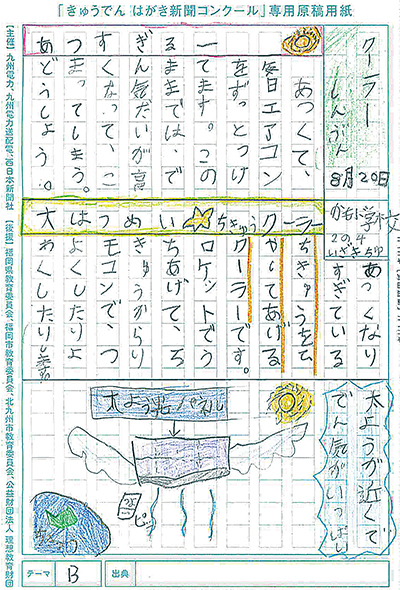 「きゅうでん はがき新聞コンクール」専用原稿用紙
クーラー
しんぶん
8月20日
あつすぎるー
あつくて、
毎日エアコン
をずっとつけ
てます。この
ままでは、で
ん気だいが高
くなって、こ
まってしまう。
どうしよう。
大はつめい ちきゅうクーラー
あつくなり
すぎている
ちきゅうをひ
やしてあげる
クーラーです。
ロケットでう
ちあげて、ち
きゅうからり
モコンで、つ
よくしたりよ
わくしたりします
太ようが近くで
でん気がいっぱい
太よう光パネル
ピッ
テーマ B 出典
【主催】九州電力、九州電力送配電、西日本新聞社 【後援】福岡県教育委員会、福岡市教育委員会、北九州市教育委員会、公益財団法人 理想教育財団